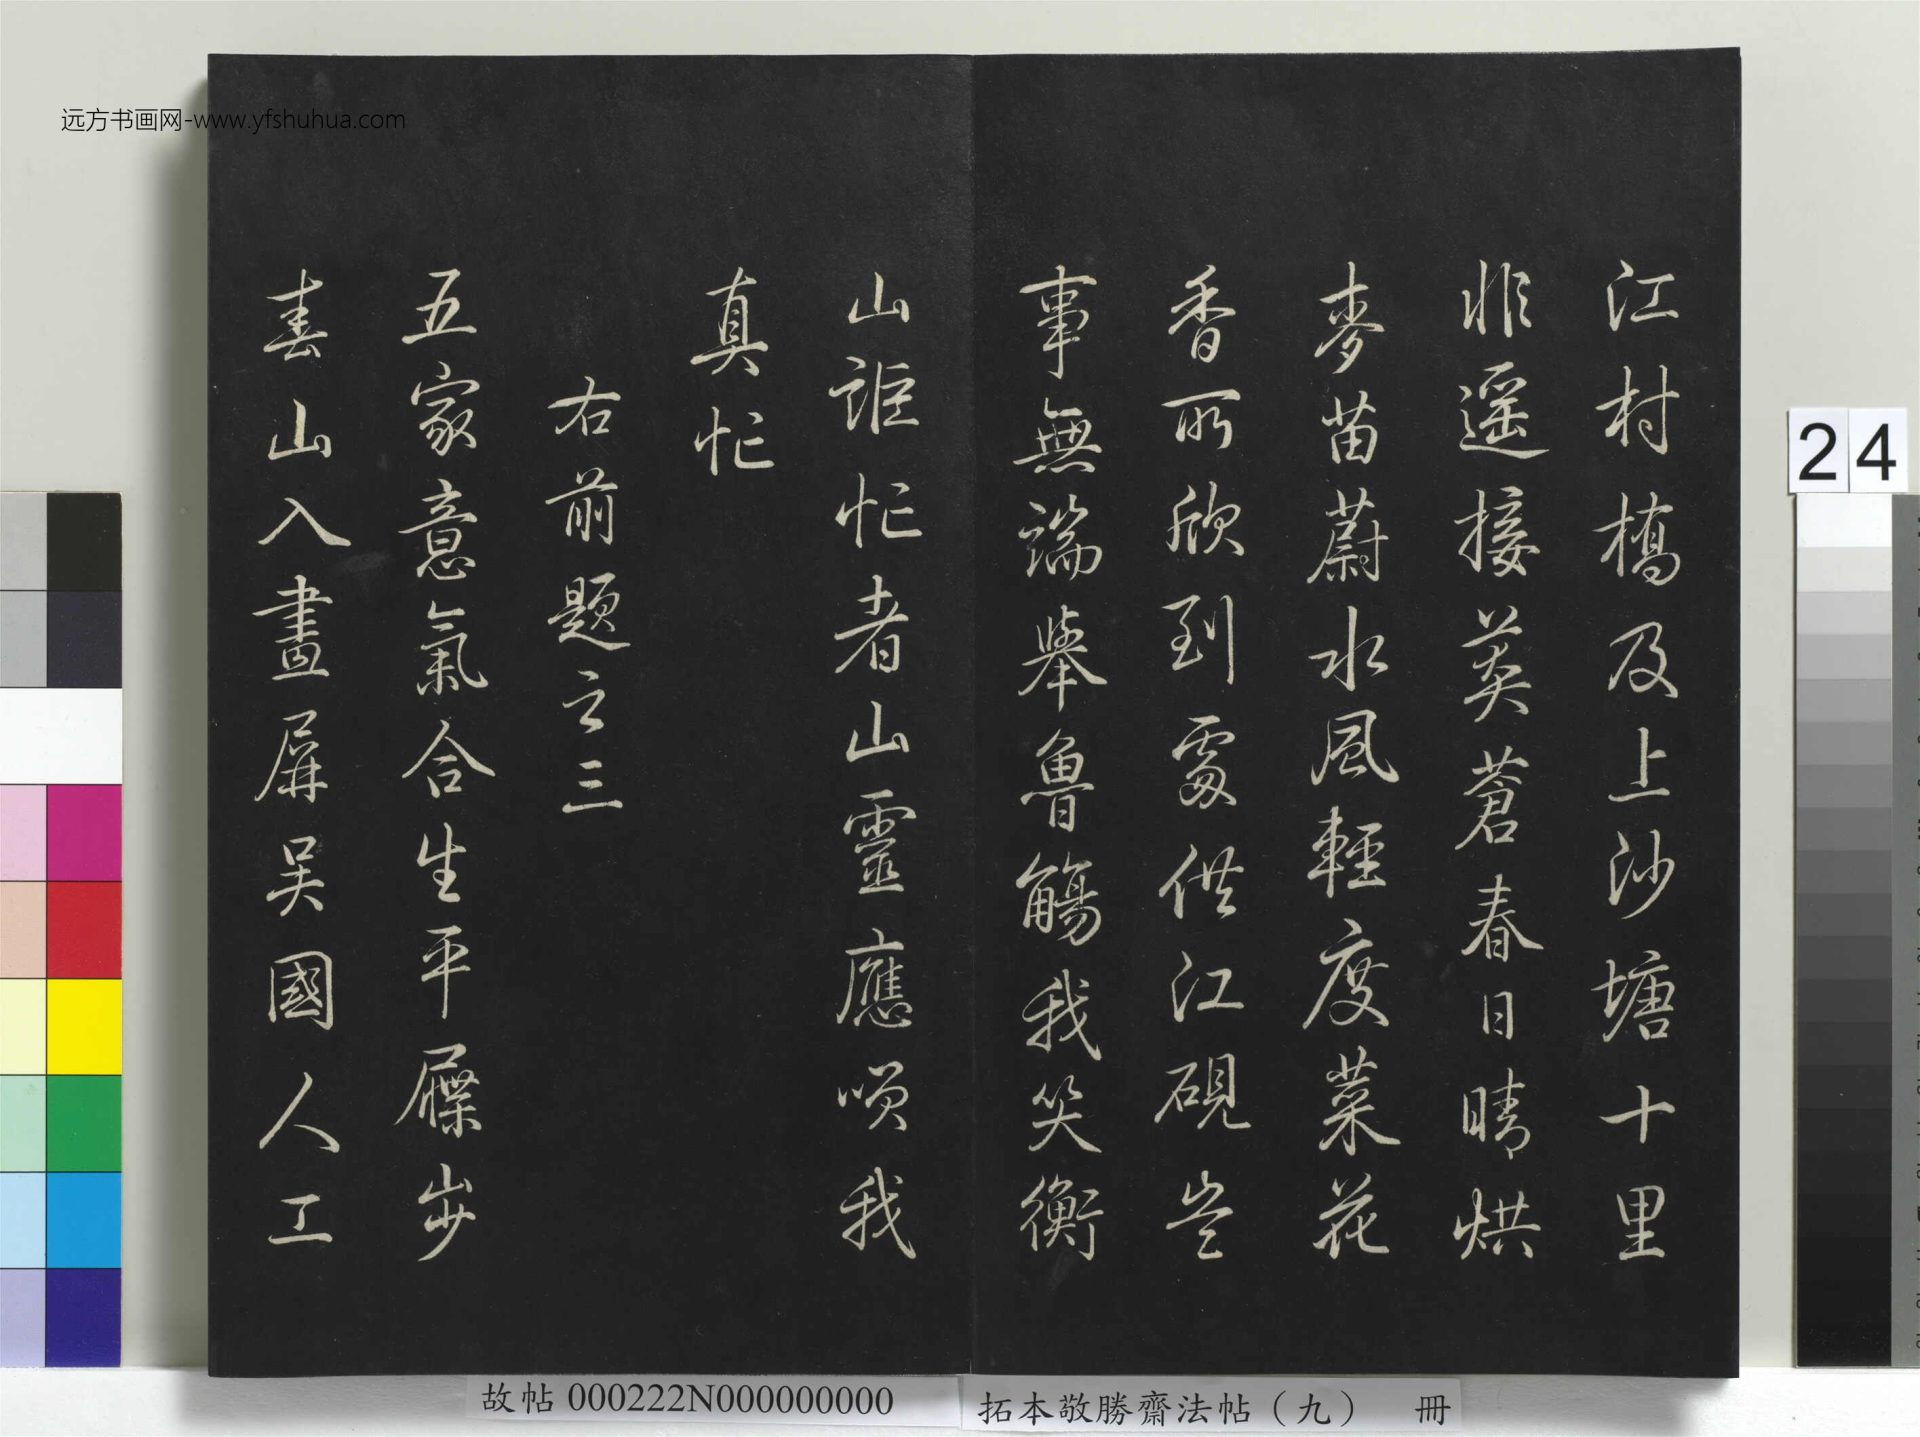 江村橋及上沙塘十里
非遥接莽蒼春日晴烘
麥苗蔚水風輕度菜花
香所欣到處供江硯豈
事無端舉魯觴我笑衡
山誰忙者山靈應我
真忙
右前題之三
五家意氣合生平屧步
山入畫屏吳國人工
远方书画网-www.yfshuhua.com
24
故帖 000222N000000000
拓本敬勝齋法帖（九） 冊